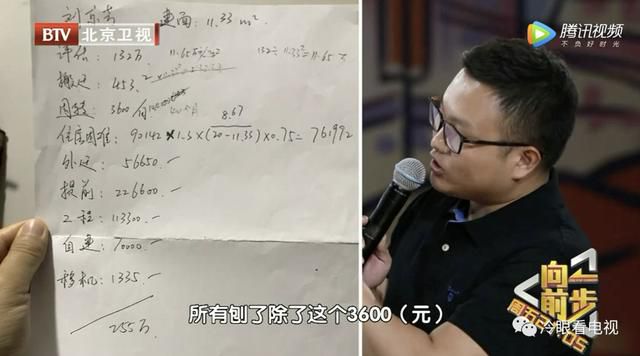 建面：11.33 m²
BTV 北京卫视
腾讯视频
不负好时光
评估：132万
搬迁：453.2
困难：3600
8.67
住房困难：90142×1.3×(20-11.33)×0.75=761992
外迁：56650.
提前：226600.
工程：113300.
自建：10000.
移机：1335.
255万
所有刨了除了这个3600（元）
向前一步
冷眼看电视